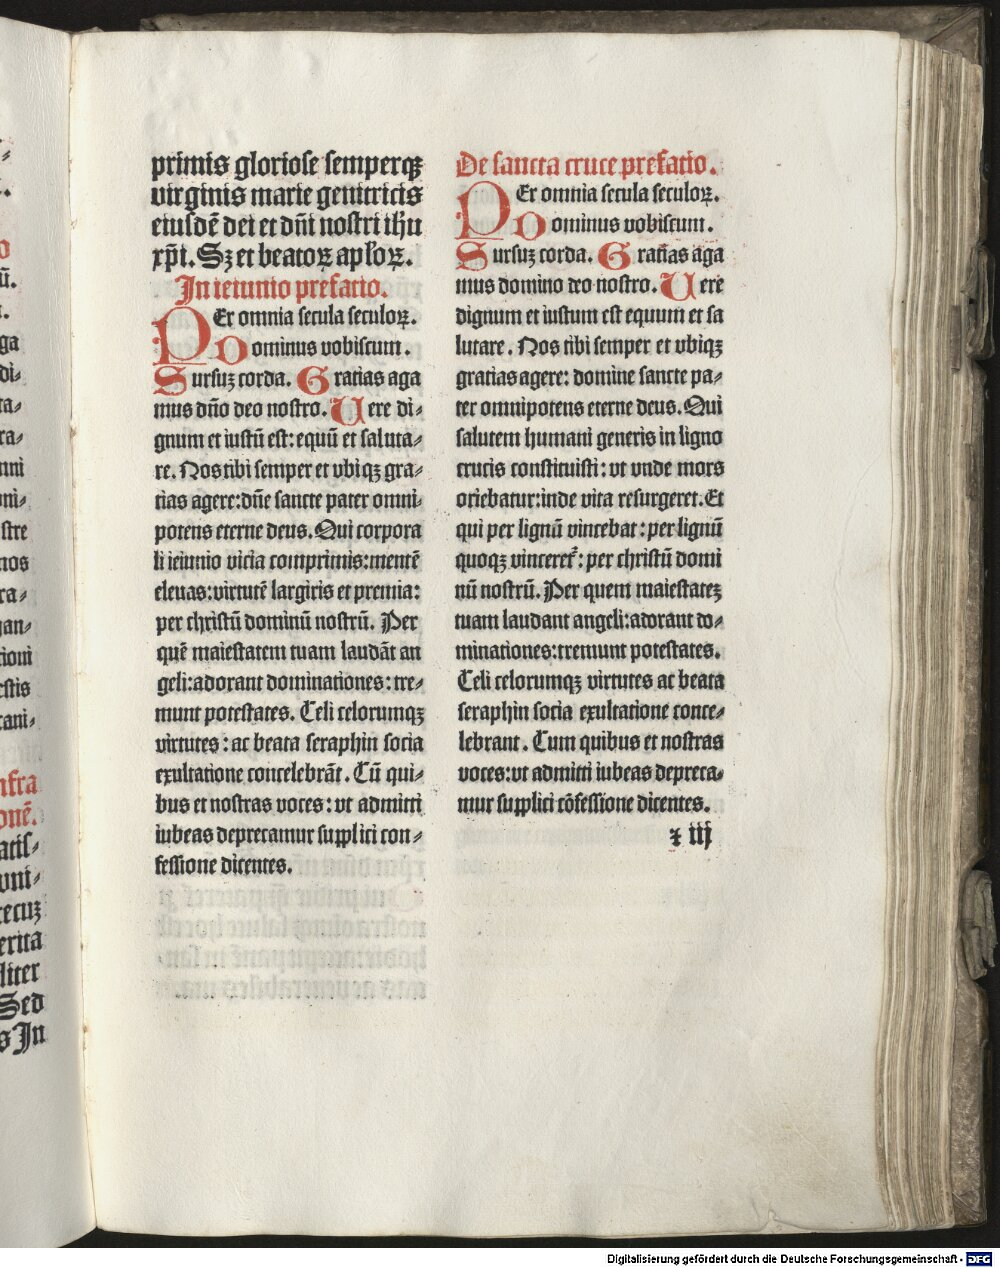 primis gloriose semperqꝫ
virginis marie genitricis
eiusdē dei et dn̄i nostri ihu
xp̄i. Sꝫ et beatoꝝ apl'oꝝ.
In ieiunio prefatio.
PEr omnia secula seculoꝝ.
Dominus vobiscum.
Sursuꝫ corda. Gratias aga
mus dn̄o deo nostro. Uere di⸗
gnum et iustū est: equū et saluta⸗
re. Nos tibi semper et vbiqꝫ gra⸗
tias agere: dn̄e sancte pater omni⸗
potens eterne deus. Qui corpora
li ieiunio vicia comprimis: mentē
eleuas: virtutē largiris et premia:
per christū dominū nostrū. Per
quē maiestatem tuam laudāt an
geli: adorant dominationes: tre⸗
munt potestates. Celi celorumqꝫ
virtutes: ac beata seraphin socia
exultatione concelebrāt. Cū qui⸗
bus et nostras voces: vt admitti
iubeas deprecamur supplici con⸗
fessione dicentes.
De sancta cruce prefatio.
PEr omnia secula seculoꝝ.
Dominus vobiscum.
Sursuꝫ corda. Gratias aga
mus domino deo nostro. Uere
dignum et iustum est equum et sa
lutare. Nos tibi semper et vbiqꝫ
gratias agere: domine sancte pa⸗
ter omnipotens eterne deus. Qui
salutem humani generis in ligno
crucis constituisti: vt vnde mors
oriebatur: inde vita resurgeret. Et
qui per lignū vincebat: per lignū
quoqꝫ vinceret᷑: per christū domi
nū nostrū. Per quem maiestateꝫ
tuam laudant angeli: adorant do⸗
minationes: tremunt potestates.
Celi celorumqꝫ virtutes ac beata
seraphin socia exultatione conce⸗
lebrant. Cum quibus et nostras
voces: vt admitti iubeas depreca⸗
mur supplici cōfessione dicentes.
ꝛ iij
Digitalisierung gefördert durch die Deutsche Forschungsgemeinschaft - DFG